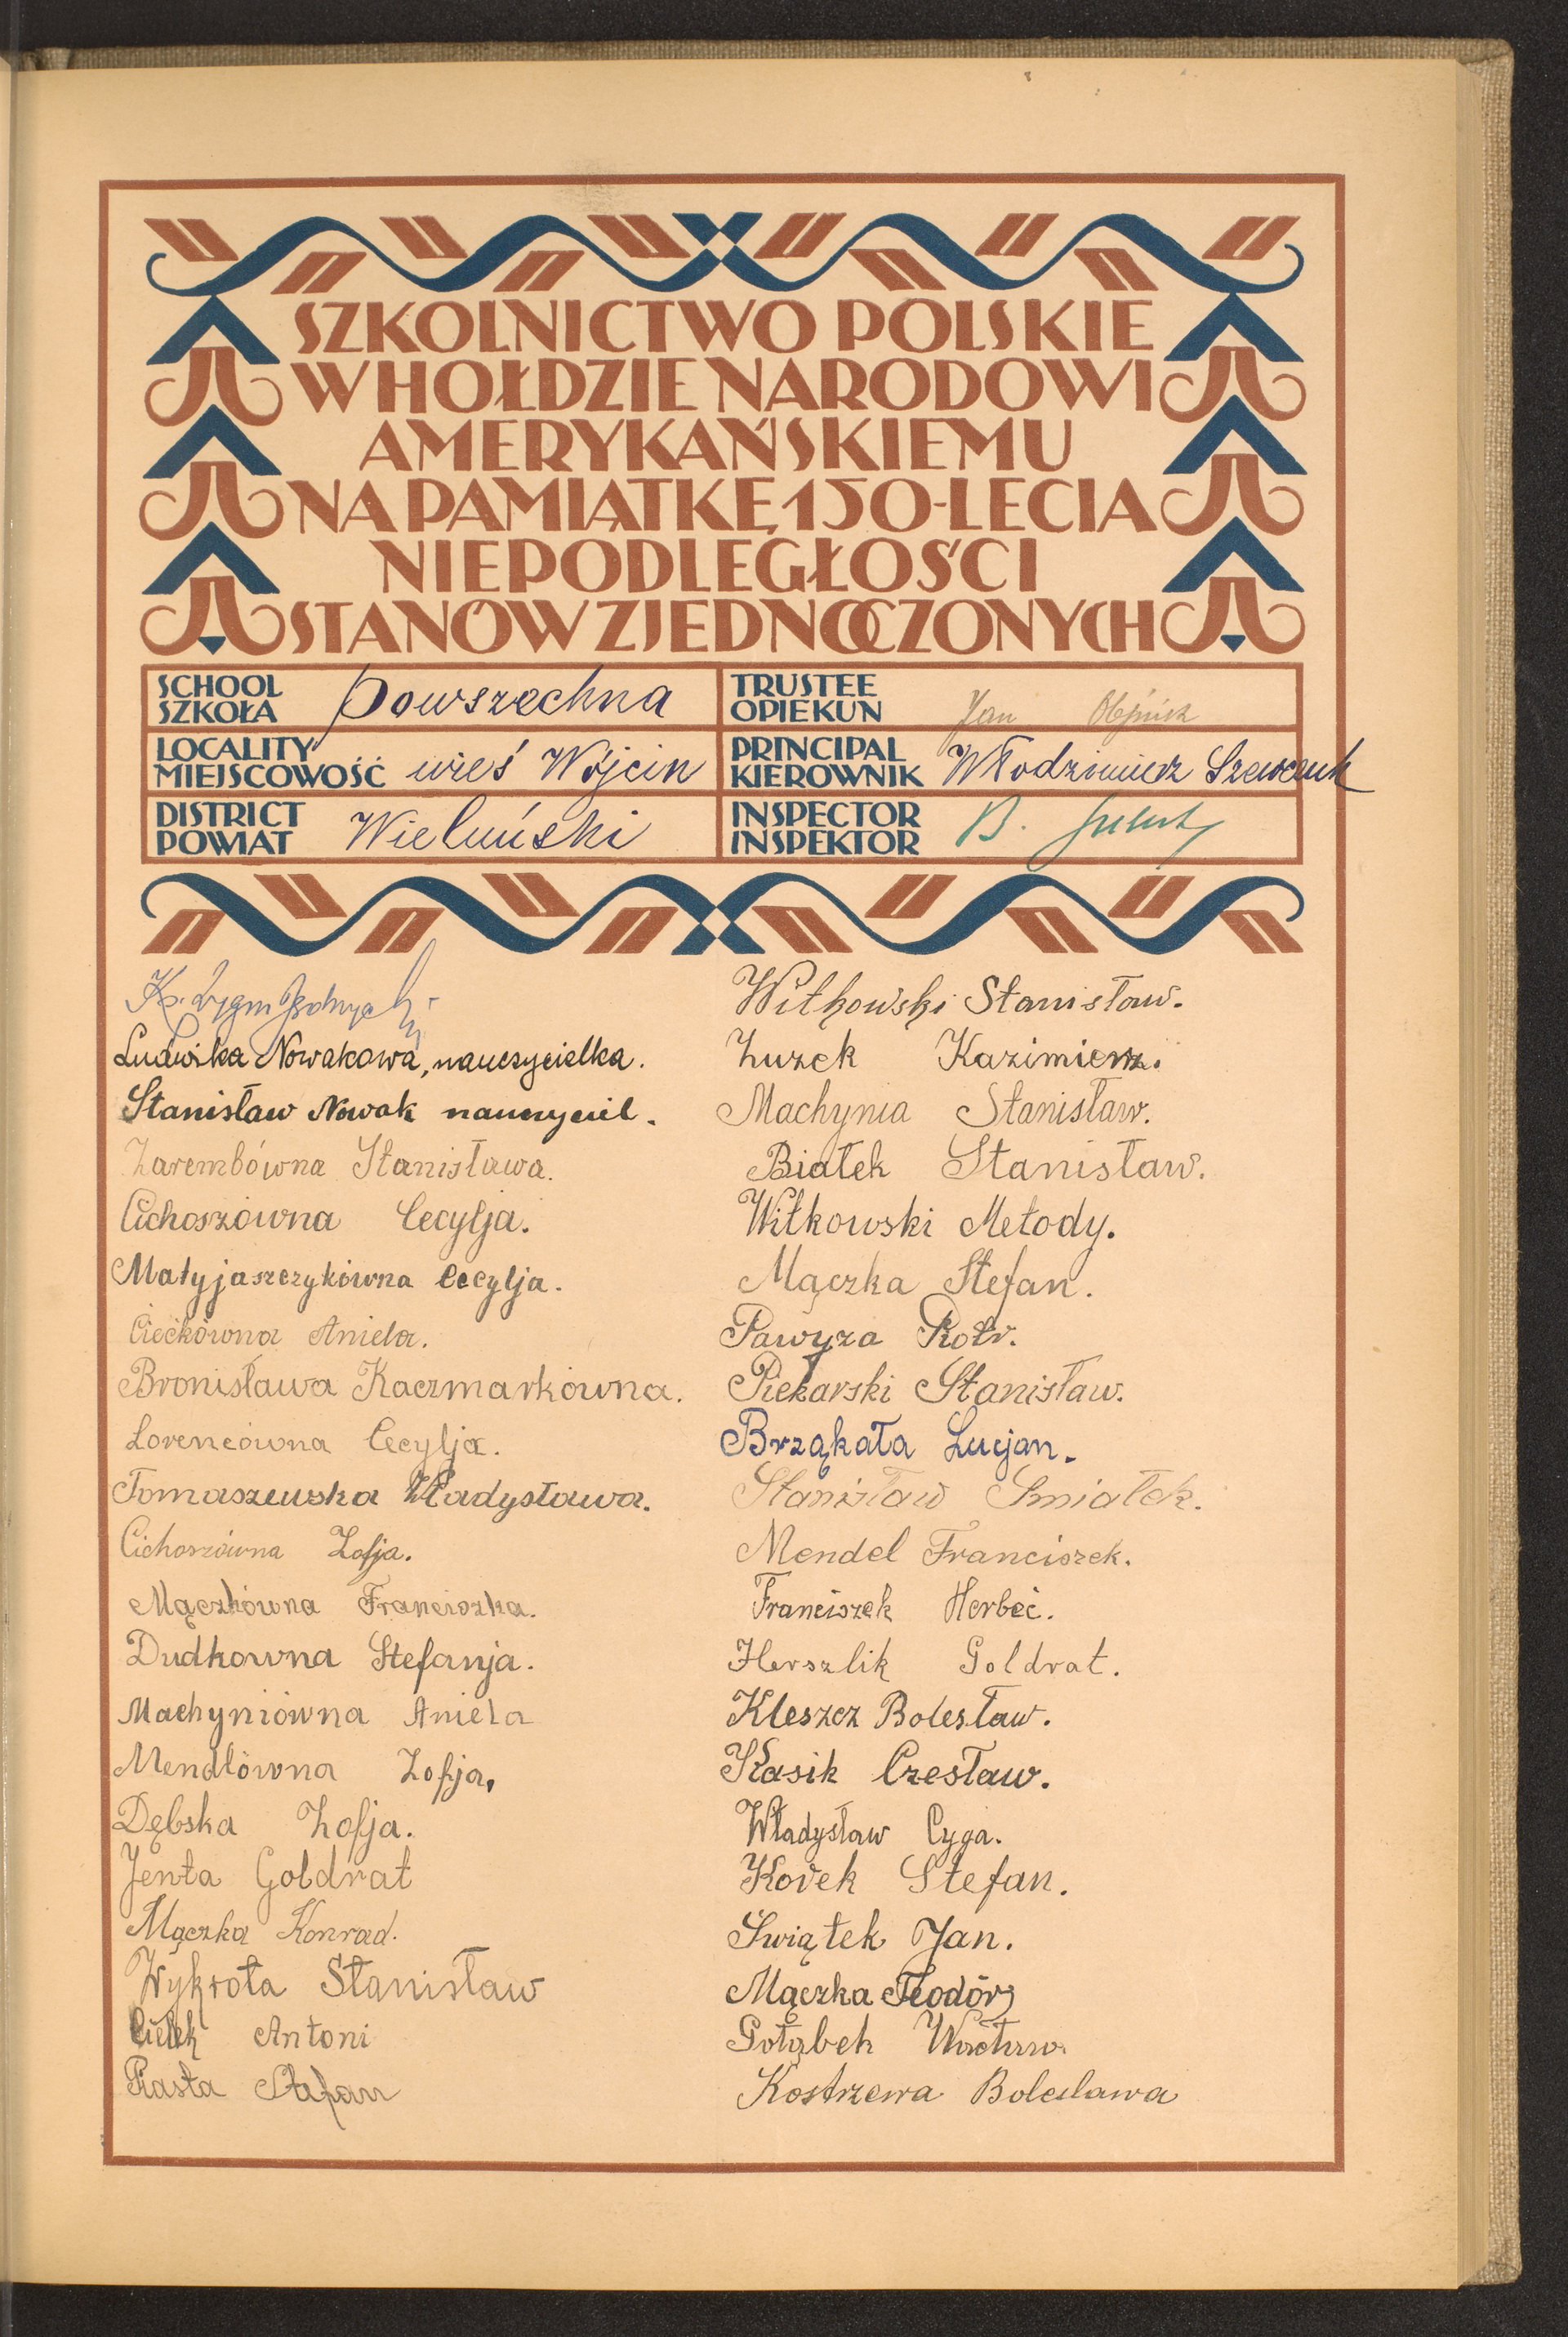 SZKOLNICTWO POLSKIE
W HOŁDZIE NARODOWI
AMERYKAŃSKIEMU
NA PAMIĄTKĘ 150-LECIA
NIEPODLEGŁOŚCI
STANÓW ZJEDNOCZONYCH
SCHOOL
SZKOŁA
Powszechna
LOCALITY
MIEJSCOWOŚĆ
wieś Wójcin
DISTRICT
POWIAT
Wieluński
TRUSTEE
OPIEKUN
Jan
PRINCIPAL
KIEROWNIK
Włodzimierz Szewczuk
INSPECTOR
INSPEKTOR
B.
Ks.
Ludwika Nowakowa, nauczycielka.
Stanisław Nowak nauczyciel.
Zarembówna Stanisława.
Cichoszówna Cecylja.
Matyjaszczykówna Cecylja.
Ciećkówna Aniela.
Bronisława Kaczmarkówna.
Lorencówna Cecylja.
Tomaszewska Władysława.
Cichoszówna Zofja.
Mączkówna Franciszka.
Dudkowna Stefanja.
Machyniówna Aniela
Mendlówna Zofja.
Dębska Zofja.
Jenta Goldrat
Mączka Konrad.
Wykrota Stanisław
Antoni
Piasta Stefan
Witkowski Stanisław.
Zuzek Kazimierz.
Machynia Stanisław.
Białek Stanisław.
Witkowski Metody.
Mączka Stefan.
Pawyza Piotr.
Piekarski Stanisław.
Brząkała Lucjan.
Stanisław Smiałek.
Mendel Franciszek.
Franciszek Herbeć.
Herszlik Goldrat.
Kleszcz Bolesław.
Kłasik Czesław.
Władysław Cyga.
Korek Stefan.
Świątek Jan.
Mączka Teodór
Gołąbek Wacław.
Kostrzewa Bolesława